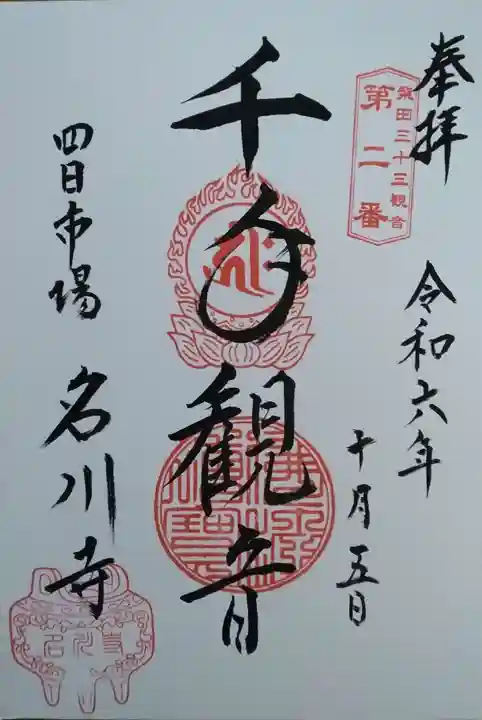 奉拝
飛田三十三観音
第二番
令和六年
十月五日
千手観音
四日市場
名川寺